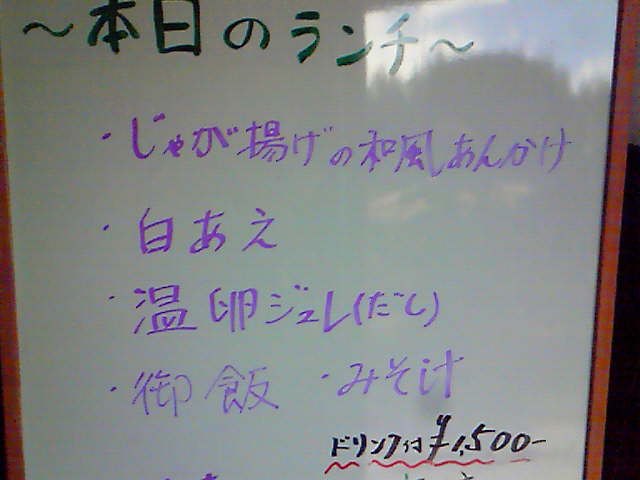 ～本日のランチ～
・じゃが揚げの和風あんかけ
・白あえ
・温卵ジュレ(だし)
・御飯 ・みそ汁
ドリンク付 ¥1,500-